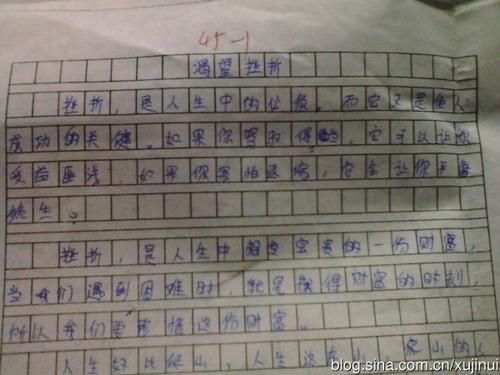 45-1
渴望挫折
挫折，是人生中的仇敌，而它又是使人
成功的关键。如果你，它可以让你
受益匪浅，如果你害怕，它会让你
终生。
挫折，是人生中相当宝贵的一份财富，
当我们遇到困难时，就是获得财富的时刻，
所以我们要珍惜这份财富。
人生好比爬山，人生这座山，爬山的人
blog.sina.com.cn/xujinui